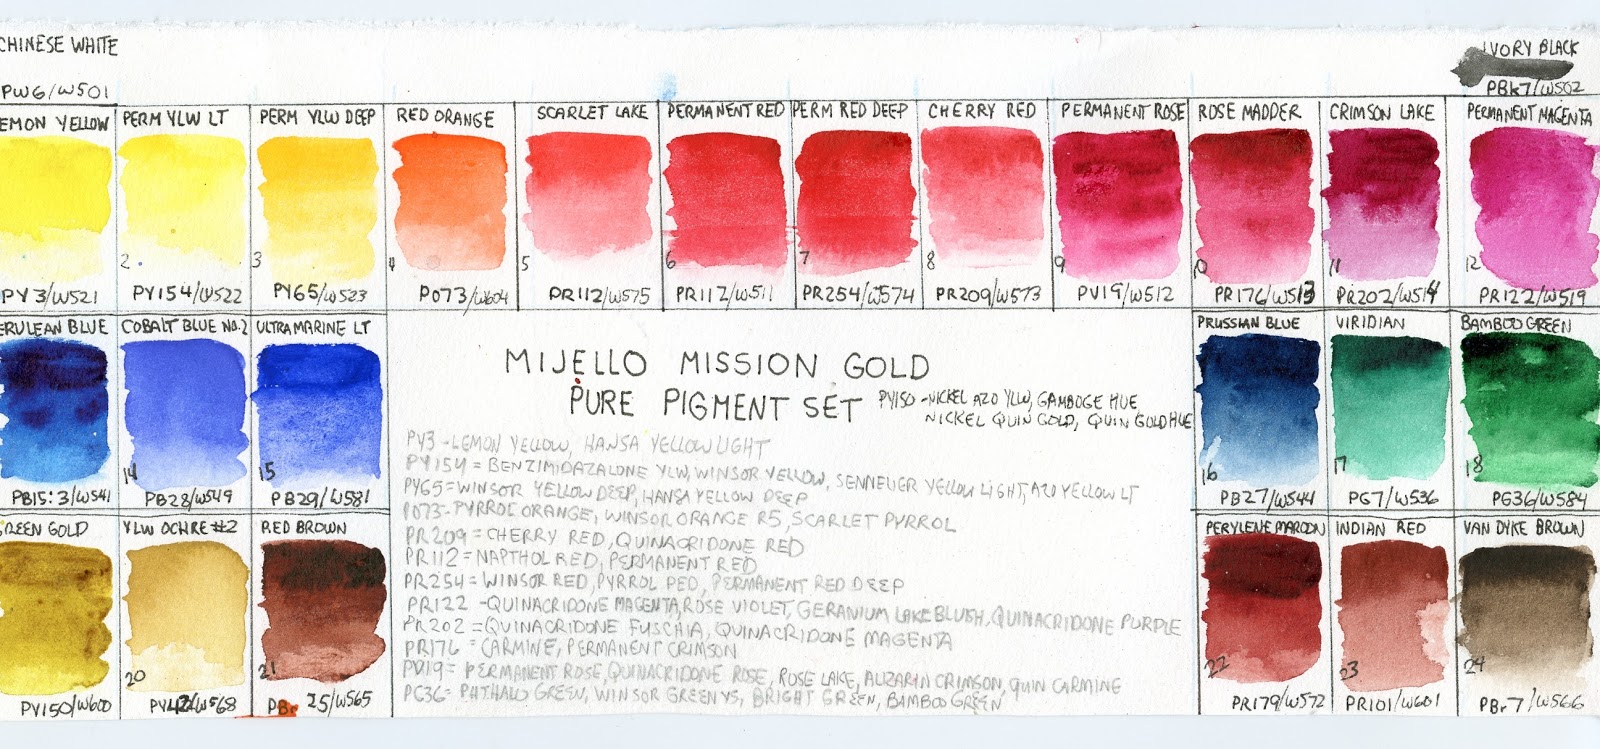 CHINESE WHITE
PW6/W501
IVORY BLACK
PBk7/W502
EMON YELLOW
PERM YLW LT
PERM YLW DEEP
RED ORANGE
SCARLET LAKE
PERMANENT RED
PERM RED DEEP
CHERRY RED
PERMANENT ROSE
ROSE MADDER
CRIMSON LAKE
PERMANENT MAGENTA
2
3
4
5
6
7
8
9
10
11
12
PY3/W521
PY154/W522
PY65/W523
PO73/W604
PR112/W575
PR112/W511
PR254/W574
PR209/W573
PV19/W512
PR176/W513
PR202/W514
PR122/W519
ERULEAN BLUE
COBALT BLUE NO.2
ULTRAMARINE LT
PRUSSIAN BLUE
VIRIDIAN
BAMBOO GREEN
14
15
16
17
18
PB15:3/W541
PB28/W549
PB29/W581
PB27/W544
PG7/W536
PG36/W584
MIJELLO MISSION GOLD
PURE PIGMENT SET
PY150 -NICKEL AZO YLW, GAMBOGE HUE
NICKEL QUIN GOLD, QUIN GOLD HUE
PY3 -LEMON YELLOW, HANSA YELLOW LIGHT
PY154 = BENZIMIDAZALONE YLW, WINSOR YELLOW, SENNELIER YELLOW LIGHT, AZO YELLOW LT
PY65 = WINSOR YELLOW DEEP, HANSA YELLOW DEEP
PO73- PYRROL ORANGE, WINSOR ORANGE RS, SCARLET PYRROL
PR209 = CHERRY RED, QUINACRIDONE RED
PR112 = NAPTHOL RED, PERMANENT RED
PR254 = WINSOR RED, PYRROL RED, PERMANENT RED DEEP
PR122 -QUINACRIDONE MAGENTA, ROSE VIOLET, GERANIUM LAKE BLUISH, QUINACRIDONE PURPLE
PR202 = QUINACRIDONE FUSCHIA, QUINACRIDONE MAGENTA
PR176 = CARMINE, PERMANENT CRIMSON
PV19 = PERMANENT ROSE, QUINACRIDONE ROSE, ROSE LAKE, ALIZARIN CRIMSON, QUIN CARMINE
PG36- PHTHALO GREEN, WINSOR GREEN YS, BRIGHT GREEN, BAMBOO GREEN
GREEN GOLD
YLW OCHRE #2
RED BROWN
PERYLENE MAROON
INDIAN RED
VAN DYKE BROWN
20
21
22
23
24
PY150/W600
PY42/W568
PBr 25/W565
PR179/W572
PR101/W601
PBr7/W566